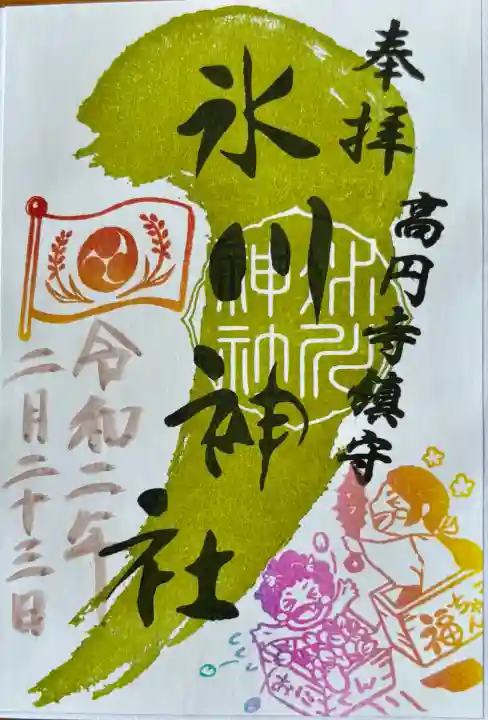 奉拝
高円寺鎮守
氷川神社
氷川
神社
令和二年
二月二十三日
福
おに